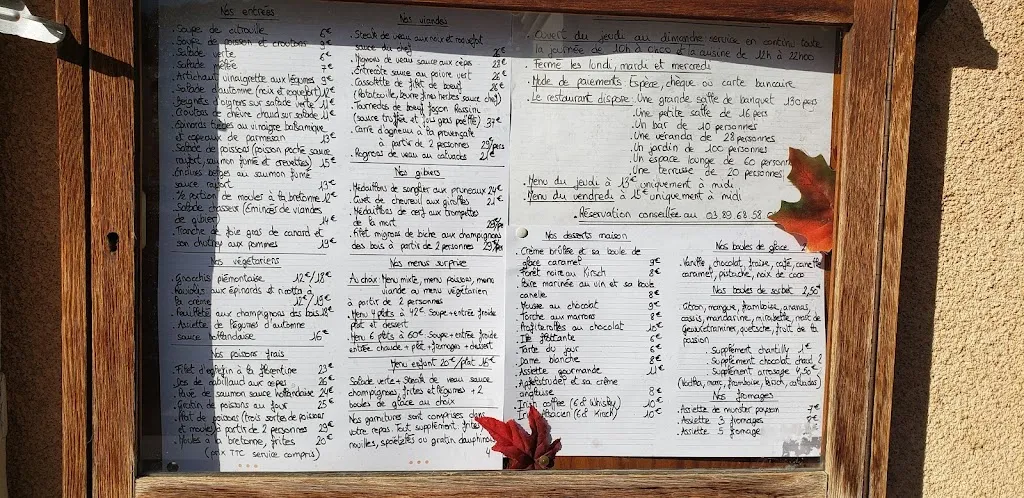 Nos entrées
Soupe de citrouille 6€
Soupe de poisson et croutons 9€
Salade verte 6€
Salade mêlée 7€
Artichaut vinaigrette aux légumes 9€
Salade d'automne (noix et roquefort) 12€
Beignets d'oignons sur salade verte 11€
Croutons de chèvre chaud sur salade 11€
Epinards tièdes au vinaigre balsamique
et copeaux de parmesan 13€
Salade de poissons (poisson poché sauce
raifort, saumon fumé et crevettes) 15€
Endives belges au saumon fumé
sauce raifort 13€
½ portion de moules à la bretonne 12€
Salade chasseur (Emincés de viandes
de gibier) 14€
Tranche de foie gras de canard et
son chutney aux pommes 19€
Nos végétariens
Gnocchis piémontaise 12€/18€
Raviolis aux épinards et ricotta à
la crème 12€/19€
Feuilleté aux champignons des bois 18€
Assiette de légumes d'automne
sauce hollandaise 16€
Nos poissons frais
Filet d'eglefin à la florentine 23€
Dos de cabillaud aux cèpes 26€
Pavé de saumon sauce hollandaise 24€
Gratin de poissons au four 25€
Plat de poissons (trois sortes de poissons
et moules) à partir de 2 personnes 29€
Moules à la bretonne, frites 20€
(prix TTC service compris)
Nos viandes
Steack de veau aux noix et roquefort
sauce du chef 26€
Mignons de veau sauce aux cèpes 28€
Entrecote sauce au poivre vert 26€
Cassolette de filet de boeuf 26€
(Ratatouille, beurre fines herbes sauce chef)
Tournedos de boeuf façon Rossini
(sauce truffée et foie gras poêlé) 37€
Carré d'agneau à la provençale
à partir de 2 personnes 29/pers
Rognons de veau au calvados 21€
Nos gibiers
Médaillons de sanglier aux pruneaux 24€
Civet de chevreuil aux girolles 21€
Médaillons de cerf aux trompettes
de la mort
Filet mignons de biche aux champignons
des bois à partir de 2 personnes
Nos menus surprise
Au choix: Menu mixte, menu poissons, menu
viande ou menu végétarien
à partir de 2 personnes
Menu 4 plats à 42€ Soupe+entrée froide
plat et dessert
Menu 6 plats à 60€ Soupe+entrée froide
entrée chaude+plat+fromages+dessert
Menu enfant 20€/plat 16€
Salade verte + Steack de veau sauce
champignons, frites et légumes + 2
boules de glace au choix
Nos garnitures sont comprises dans
votre repas. Tout supplément frites,
nouilles, spaetzlés ou gratin dauphinois
4
Ouvert du jeudi au dimanche service en continu toute
la journée de 10h à et la cuisine de 12h à 22h00
Fermé les lundi, mardi et mercredi
Mode de paiements Espèce, chèque ou carte bancaire
Le restaurant dispose: Une grande salle de banquet 130 pers
.Une petite salle de 16 pers
.Un bar de 10 personnes
.Une véranda de 28 personnes
.Un jardin de 100 personnes
.Un espace lounge de 60 personnes
.Une terrasse de 20 personnes
Menu du jeudi à 13€ uniquement à midi
Menu du vendredi à 15€ uniquement à midi
.Réservation conseillée au 03.89.68.58
Nos desserts maison
Crème brûlée et sa boule de
glace caramel 9€
Forêt noire au Kirsch 8€
Poire marinée au vin et sa boule
canelle 8€
Mousse au chocolat 9€
Torche aux marrons 8€
Profiterolles au chocolat 10€
Ile flottante 6€
Tarte du jour 6€
Dame blanche 8€
Assiette gourmande 11€
Apfelstrudel et sa crème
anglaise 8€
Irish coffee (6cl Whisky) 10€
Irish alsacien (6cl Kirsch) 10€
Nos boules de glace 2
Vanille, chocolat, fraise, café, canelle
caramel, pistache, noix de coco
Nos boules de sorbet 2,50€
Citron, mangue, framboise, ananas,
cassis, mandarine, mirabelle, marc de
Gewurztraminer, quetsche, fruit de la
passion
Supplément chantilly 1€
Supplément chocolat chaud 2
Supplément arrosage 4,50€
(Vodka, marc, framboise, kirsch, calvados)
Nos fromages
Assiette de munster paysan 7€
Assiette 3 fromages
Assiette 5 fromage